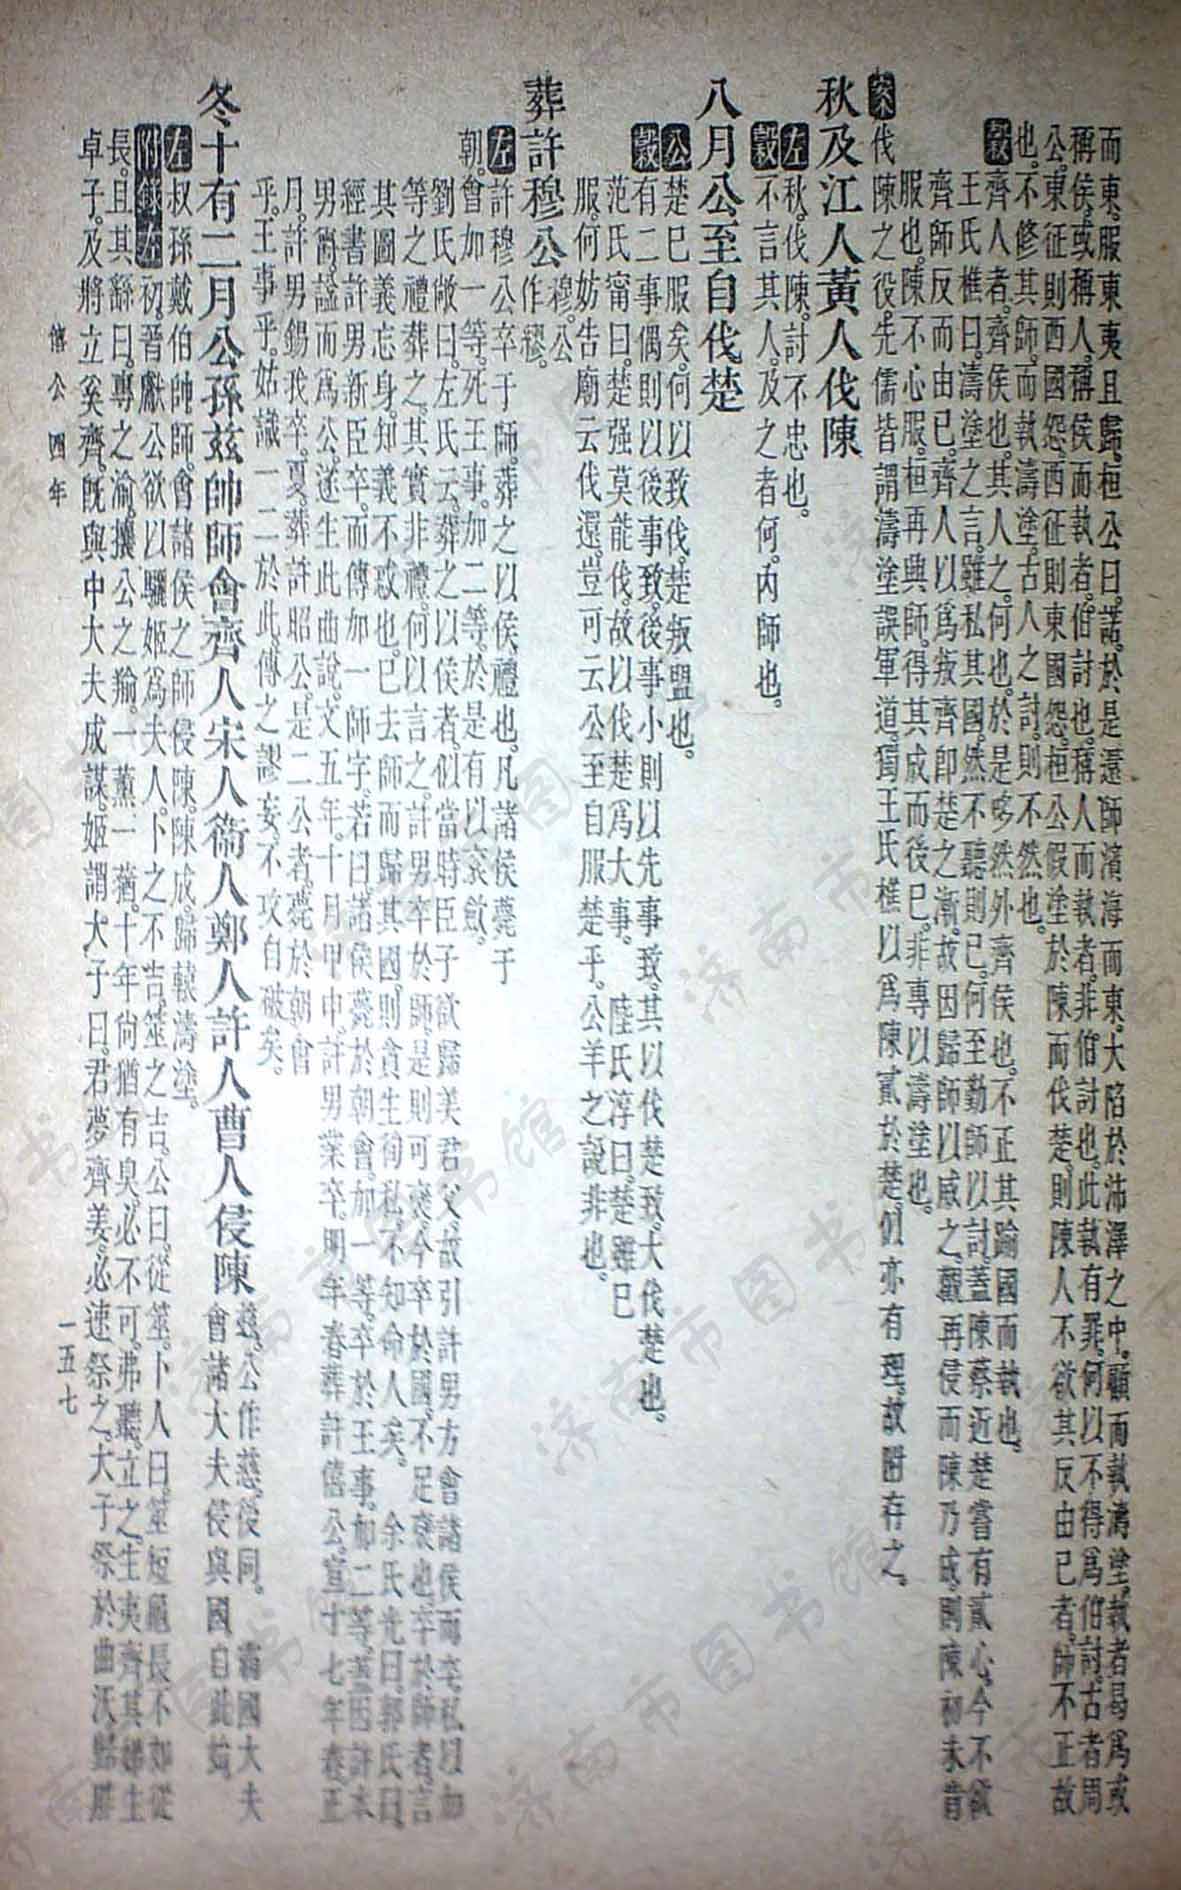 而東服東夷且歸桓公曰諾於是還師濱海而東大陷於沛澤之中顧而執濤塗執者曷爲或
稱侯或稱人稱侯而執者伯討也稱人而執者非伯討也此執有罪何以不得爲伯討古者周
公東征則西國怨西征則東國怨桓公假塗於陳而伐楚則陳人不欲其反由己者師不正故
也不修其師而執濤塗古人之討則不然也
穀齊人者齊侯也其人之何也於是哆然外齊侯也不正其踰國而執也
王氏樵曰濤塗之言雖私其國然不聽則已何至勤師以討蓋陳蔡近楚嘗有貳心今不欲
齊師反而由已齊人以爲叛齊卽楚之漸故因歸師以威之觀再侵而陳乃成則陳初未肯
服也陳不心服桓再興師得其成而後已非專以濤塗也
案伐陳之役先儒皆謂濤塗誤軍道獨王氏樵以爲陳貳於楚似亦有理故附存之
秋及江人黃人伐陳
左秋伐陳討不忠也
穀不言其人及之者何內師也
八月公至自伐楚
公楚已服矣何以致伐楚叛盟也
穀有二事偶則以後事致後事小則以先事致其以伐楚致大伐楚也
范氏甯曰楚强莫能伐故以伐楚爲大事 陸氏淳曰楚雖已
服何妨告廟云伐還豈可云公至自服楚乎公羊之說非也
葬許穆公 穆公作繆
左許穆公卒于師葬之以侯禮也凡諸侯薨于
朝會加一等死王事加二等於是有以袞斂
劉氏敞曰左氏云葬之以侯者似當時臣子欲歸美君父故引許男方會諸侯而卒私以加
等之禮葬之其實非禮何以言之計男卒於師是則可褒今卒於國不足褒也卒於師者言
其圖義忘身知義不惑也已去師而歸其國則貪生徇私不知命人矣 余氏光曰郭氏曰
經書許男新臣卒而傳加一師字若曰諸侯薨於朝會加一等卒於王事加二等蓋因許本
男爵謚而爲公遂生此曲說文五年十月甲申許男業卒明年春葬許僖公宣十七年春正
月許男錫我卒夏葬許昭公是二公者薨於朝會
乎王事乎姑識一二於此傳之謬妄不攻自破矣
冬十有二月公孫茲帥師會齊人宋人衞人鄭人許人曹人侵陳 茲公作慈後同 霸國大夫會諸大夫侵與國自此始
左叔孫戴伯帥師會諸侯之師侵陳陳成歸轅濤塗
附錄左初晉獻公欲以驪姬爲夫人卜之不吉筮之吉公曰從筮卜人曰筮短龜長不如從
長且其繇曰專之渝攘公之羭一薰一蕕十年尙猶有臭必不可弗聽立之生夷齊其娣生
卓子及將立奚齊旣與中大夫成謀姬謂大子曰君夢齊姜必速祭之大子祭於曲沃歸胙
僖公四年
一五七